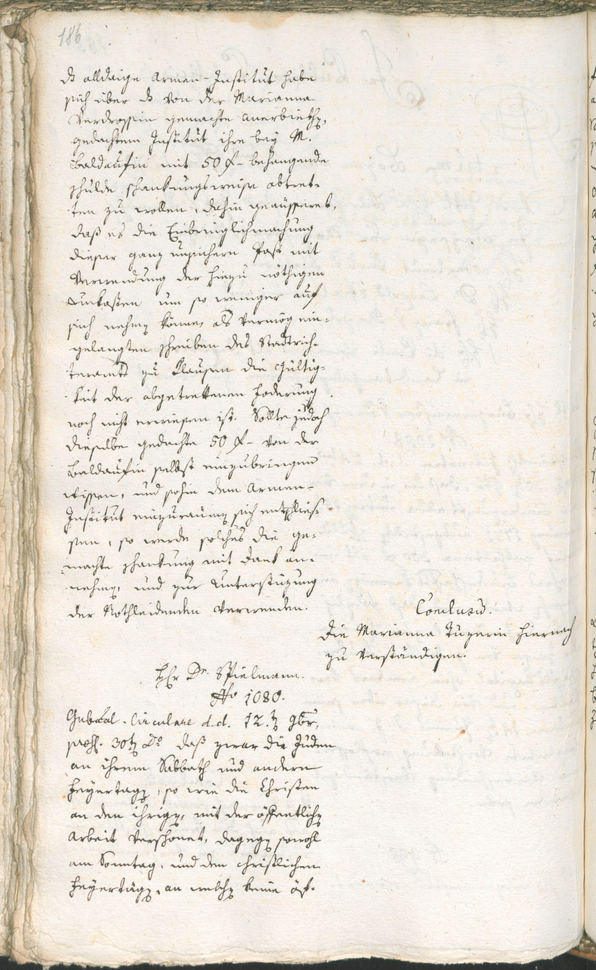 186
ds alldaige Armen-Institut habe
sich über ds von der Marianna
Verdroßin gemachte Anerbiethen,
gedachtem Institut ihre bey M.
Baldaufin mit 50 f– behangende
schulde schankungsweise abtret-
ten zu wollen, dahin geäussert,
daß es die Einbringlichmachung
dieser ganz unsichern Post mit
Verwendung der hiezu nöthigen
Unkosten um so weniger auf
sich nehmen könne, als vermög ein-
gelangten schreiben des Stadtrich-
teramts zu Klausen die Gültig-
keit der abgetrettenen Foderung
noch nicht erwiesen ist. Sollte jedoch
dieselbe gedachte 50 f– von der
Baldaufin selbst einzubringen
wissen, und sohin dem Armen-
Institut einzuraumen sich entschlies-
sen, so werde solches die ge-
machte schankung mit Dank an-
nehmen, und zur Unterstüzung
der Nothleidenden verwenden.
Conclusum.
Die Marianna Tuzerin hiernach
zu verständigen.
Hr Dr. Spielmann.
No 1080.
Gubernial-Circulare d.d. 12.ten 9br,
praes. 30ten do daß zwar die Juden
an ihrem Sabbath und andern
Feyertagen, so wie die Christen
an den ihrigen, mit der öffentlichen
Arbeit verschonet, dagegen sowohl
am Sonntag, und den christlichen
Feyertägen, an welchen keine öf-